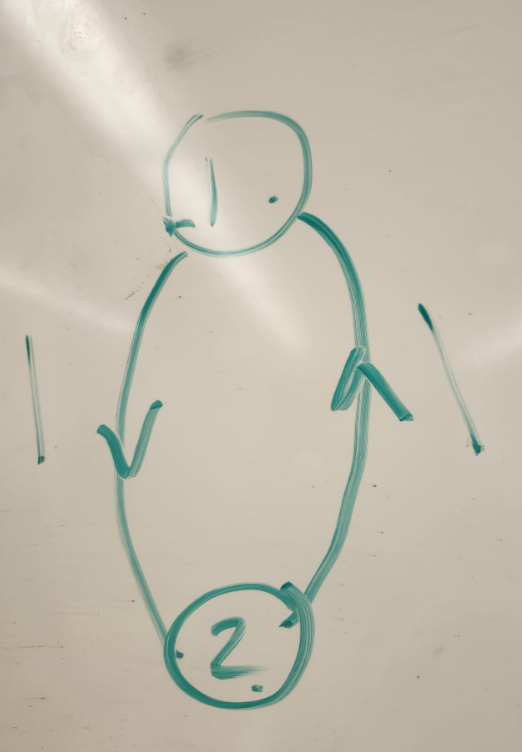 1
1 1
2